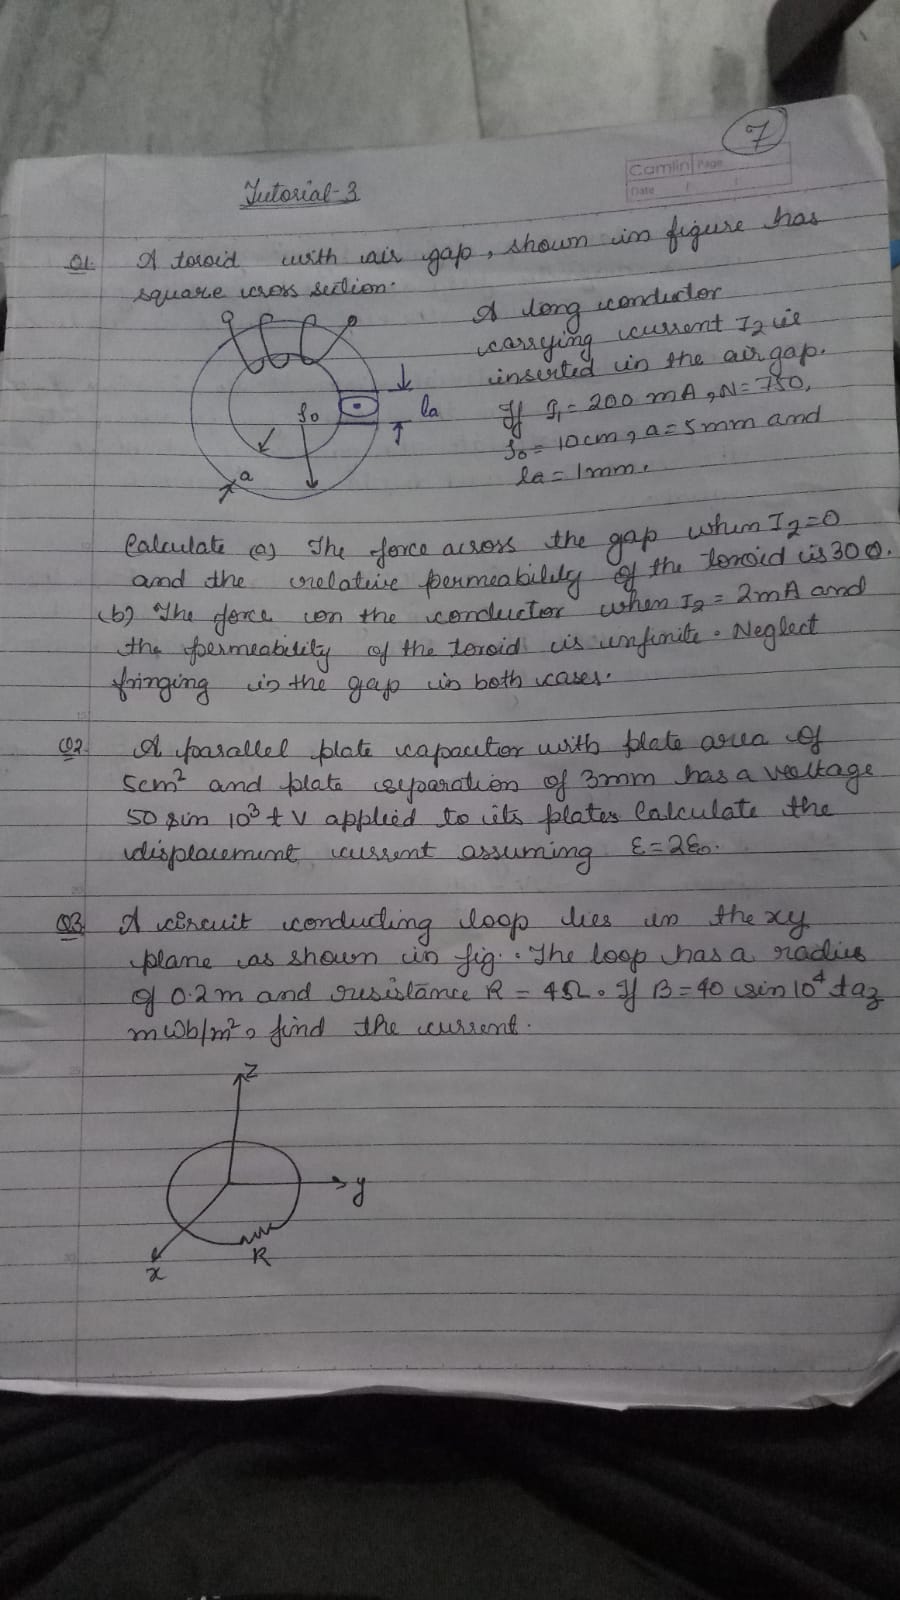 7
Camlin Page
Date
Tutorial-3
Q1. A toroid with air gap, shown in figure has
square cross section.
A long conductor
carrying current I2 is
inserted in the air gap.
If I1 = 200 mA, N = 750,
ρ0 = 10cm, a = 5mm and
la = 1mm.
ρ0
la
a
Calculate (a) The force across the gap when I2=0
and the relative permeability of the toroid is 300.
(b) The force on the conductor when I2 = 2mA and
the permeability of the toroid is infinite. Neglect
fringing in the gap in both cases.
Q2. A parallel plate capacitor with plate area of
5cm² and plate separation of 3mm has a voltage
50 sin 10³t V applied to its plates Calculate the
displacement current assuming ε=2ε0.
Q3 A circuit conducting loop lies in the xy
plane as shown in fig. The loop has a radius
of 0.2m and resistance R = 4Ω. If B=40 sin 10⁴ t az
mWb/m², find the current.
z
y
x
R